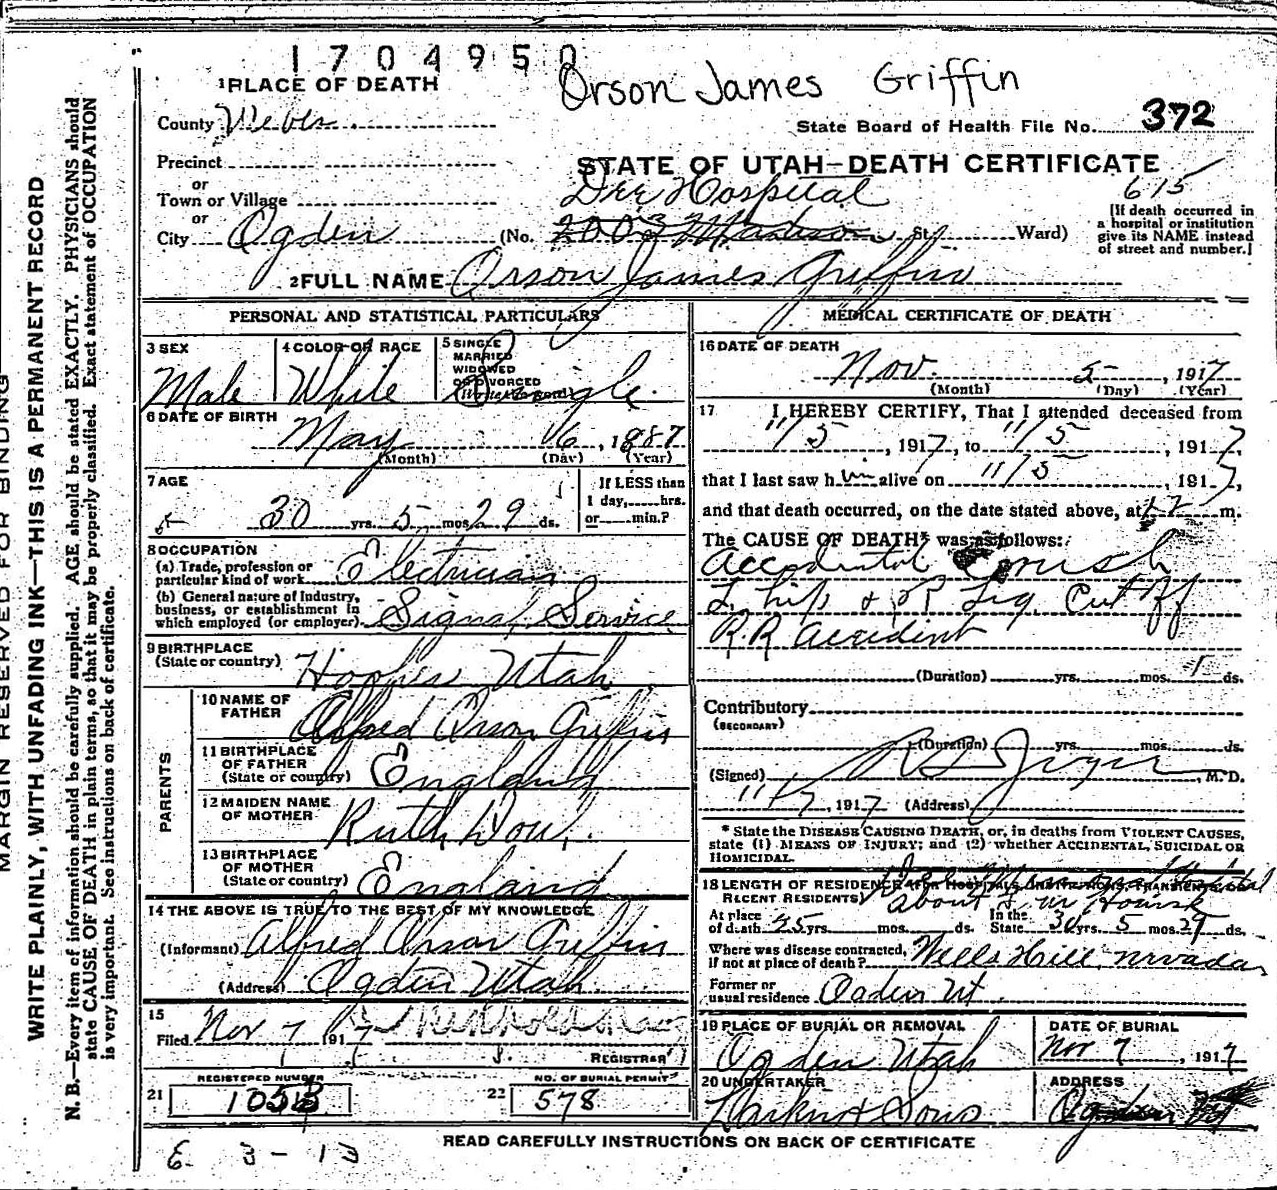 1704950
Orson James Griffin
1 PLACE OF DEATH
County Weber
State Board of Health File No. 372
Precinct
STATE OF UTAH—DEATH CERTIFICATE
or
Town or Village
Dee Hospital
615
or
City Ogden (No. 2003 Madison St. Ward)
[If death occurred in
a hospital or institution
give its NAME instead
of street and number.]
2 FULL NAME Orson James Griffin
PERSONAL AND STATISTICAL PARTICULARS
3 SEX
Male
4 COLOR OR RACE
White
5 SINGLE
MARRIED
WIDOWED
OR DIVORCED
(Write the word)
Single
6 DATE OF BIRTH
May 6, 1887
(Month) (Day) (Year)
7 AGE
30 yrs. 5 mos. 29 ds.
If LESS than
1 day, hrs.
or min.?
8 OCCUPATION
(a) Trade, profession or
particular kind of work Electrician
(b) General nature of Industry,
business, or establishment in
which employed (or employer) Signal Service
9 BIRTHPLACE
(State or country) Hooper Utah
PARENTS
10 NAME OF
FATHER Alfred Orson Griffin
11 BIRTHPLACE
OF FATHER
(State or country) England
12 MAIDEN NAME
OF MOTHER Ruth
13 BIRTHPLACE
OF MOTHER
(State or country) England
14 THE ABOVE IS TRUE TO THE BEST OF MY KNOWLEDGE
(Informant) Alfred Orson Griffin
(Address) Ogden Utah
15
Filed Nov 7 1917
REGISTRAR
REGISTERED NUMBER
21
NO. OF BURIAL PERMIT
22 578
MEDICAL CERTIFICATE OF DEATH
16 DATE OF DEATH
Nov. 5, 1917
(Month) (Day) (Year)
17 I HEREBY CERTIFY, That I attended deceased from
11/5, 1917, to 11/5, 1917,
that I last saw him alive on 11/5, 1917,
and that death occurred, on the date stated above, at m.
The CAUSE OF DEATH* was as follows:
Accidental Crush
L. hip & R Leg Cut off
R.R accident
(Duration) yrs. mos. 1 ds.
Contributory
(SECONDARY)
(Duration) yrs. mos. ds.
(Signed) M.D.
11/7, 1917 (Address)
* State the DISEASE CAUSING DEATH, or, in deaths from VIOLENT CAUSES,
state (1) MEANS OF INJURY; and (2) whether ACCIDENTAL, SUICIDAL OR
HOMICIDAL.
18 LENGTH OF RESIDENCE (FOR HOSPITALS, INSTITUTIONS, TRANSIENTS OR
RECENT RESIDENTS)
At place
of death 25 yrs. mos. ds.
In the
State 30 yrs. 5 mos. 29 ds.
Where was disease contracted,
If not at place of death? Wells Hill. Nevada,
Former or
usual residence Ogden Ut.
19 PLACE OF BURIAL OR REMOVAL
Ogden Utah
DATE OF BURIAL
Nov 7, 1917
20 UNDERTAKER
Larkin & Sons
ADDRESS
Ogden
READ CAREFULLY INSTRUCTIONS ON BACK OF CERTIFICATE
MARGIN RESERVED FOR BINDING
WRITE PLAINLY, WITH UNFADING INK—THIS IS A PERMANENT RECORD
N. B.—Every item of information should be carefully supplied. AGE should be stated EXACTLY. PHYSICIANS should
state CAUSE OF DEATH in plain terms, so that it may be properly classified. Exact statement of OCCUPATION
is very important. See instructions on back of certificate.